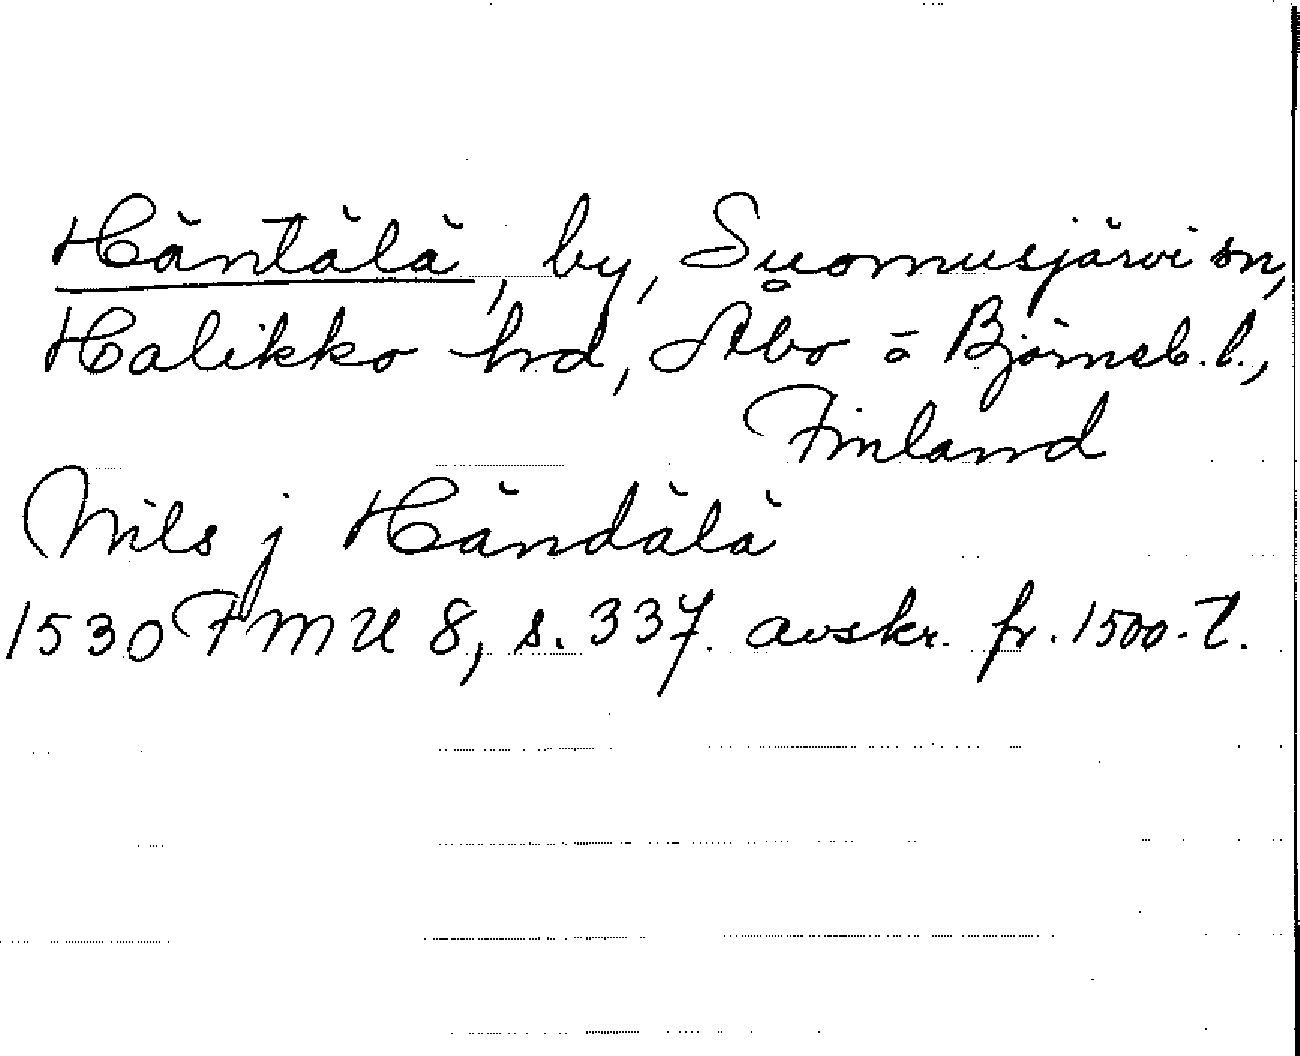 Häntälä, by, Suomusjärvi sn,
Halikko hd, Åbo o Björneb. l.,
Finland
Nils j Händälä
1530 FMU 8, s. 337. avskr. fr. 1500-t.